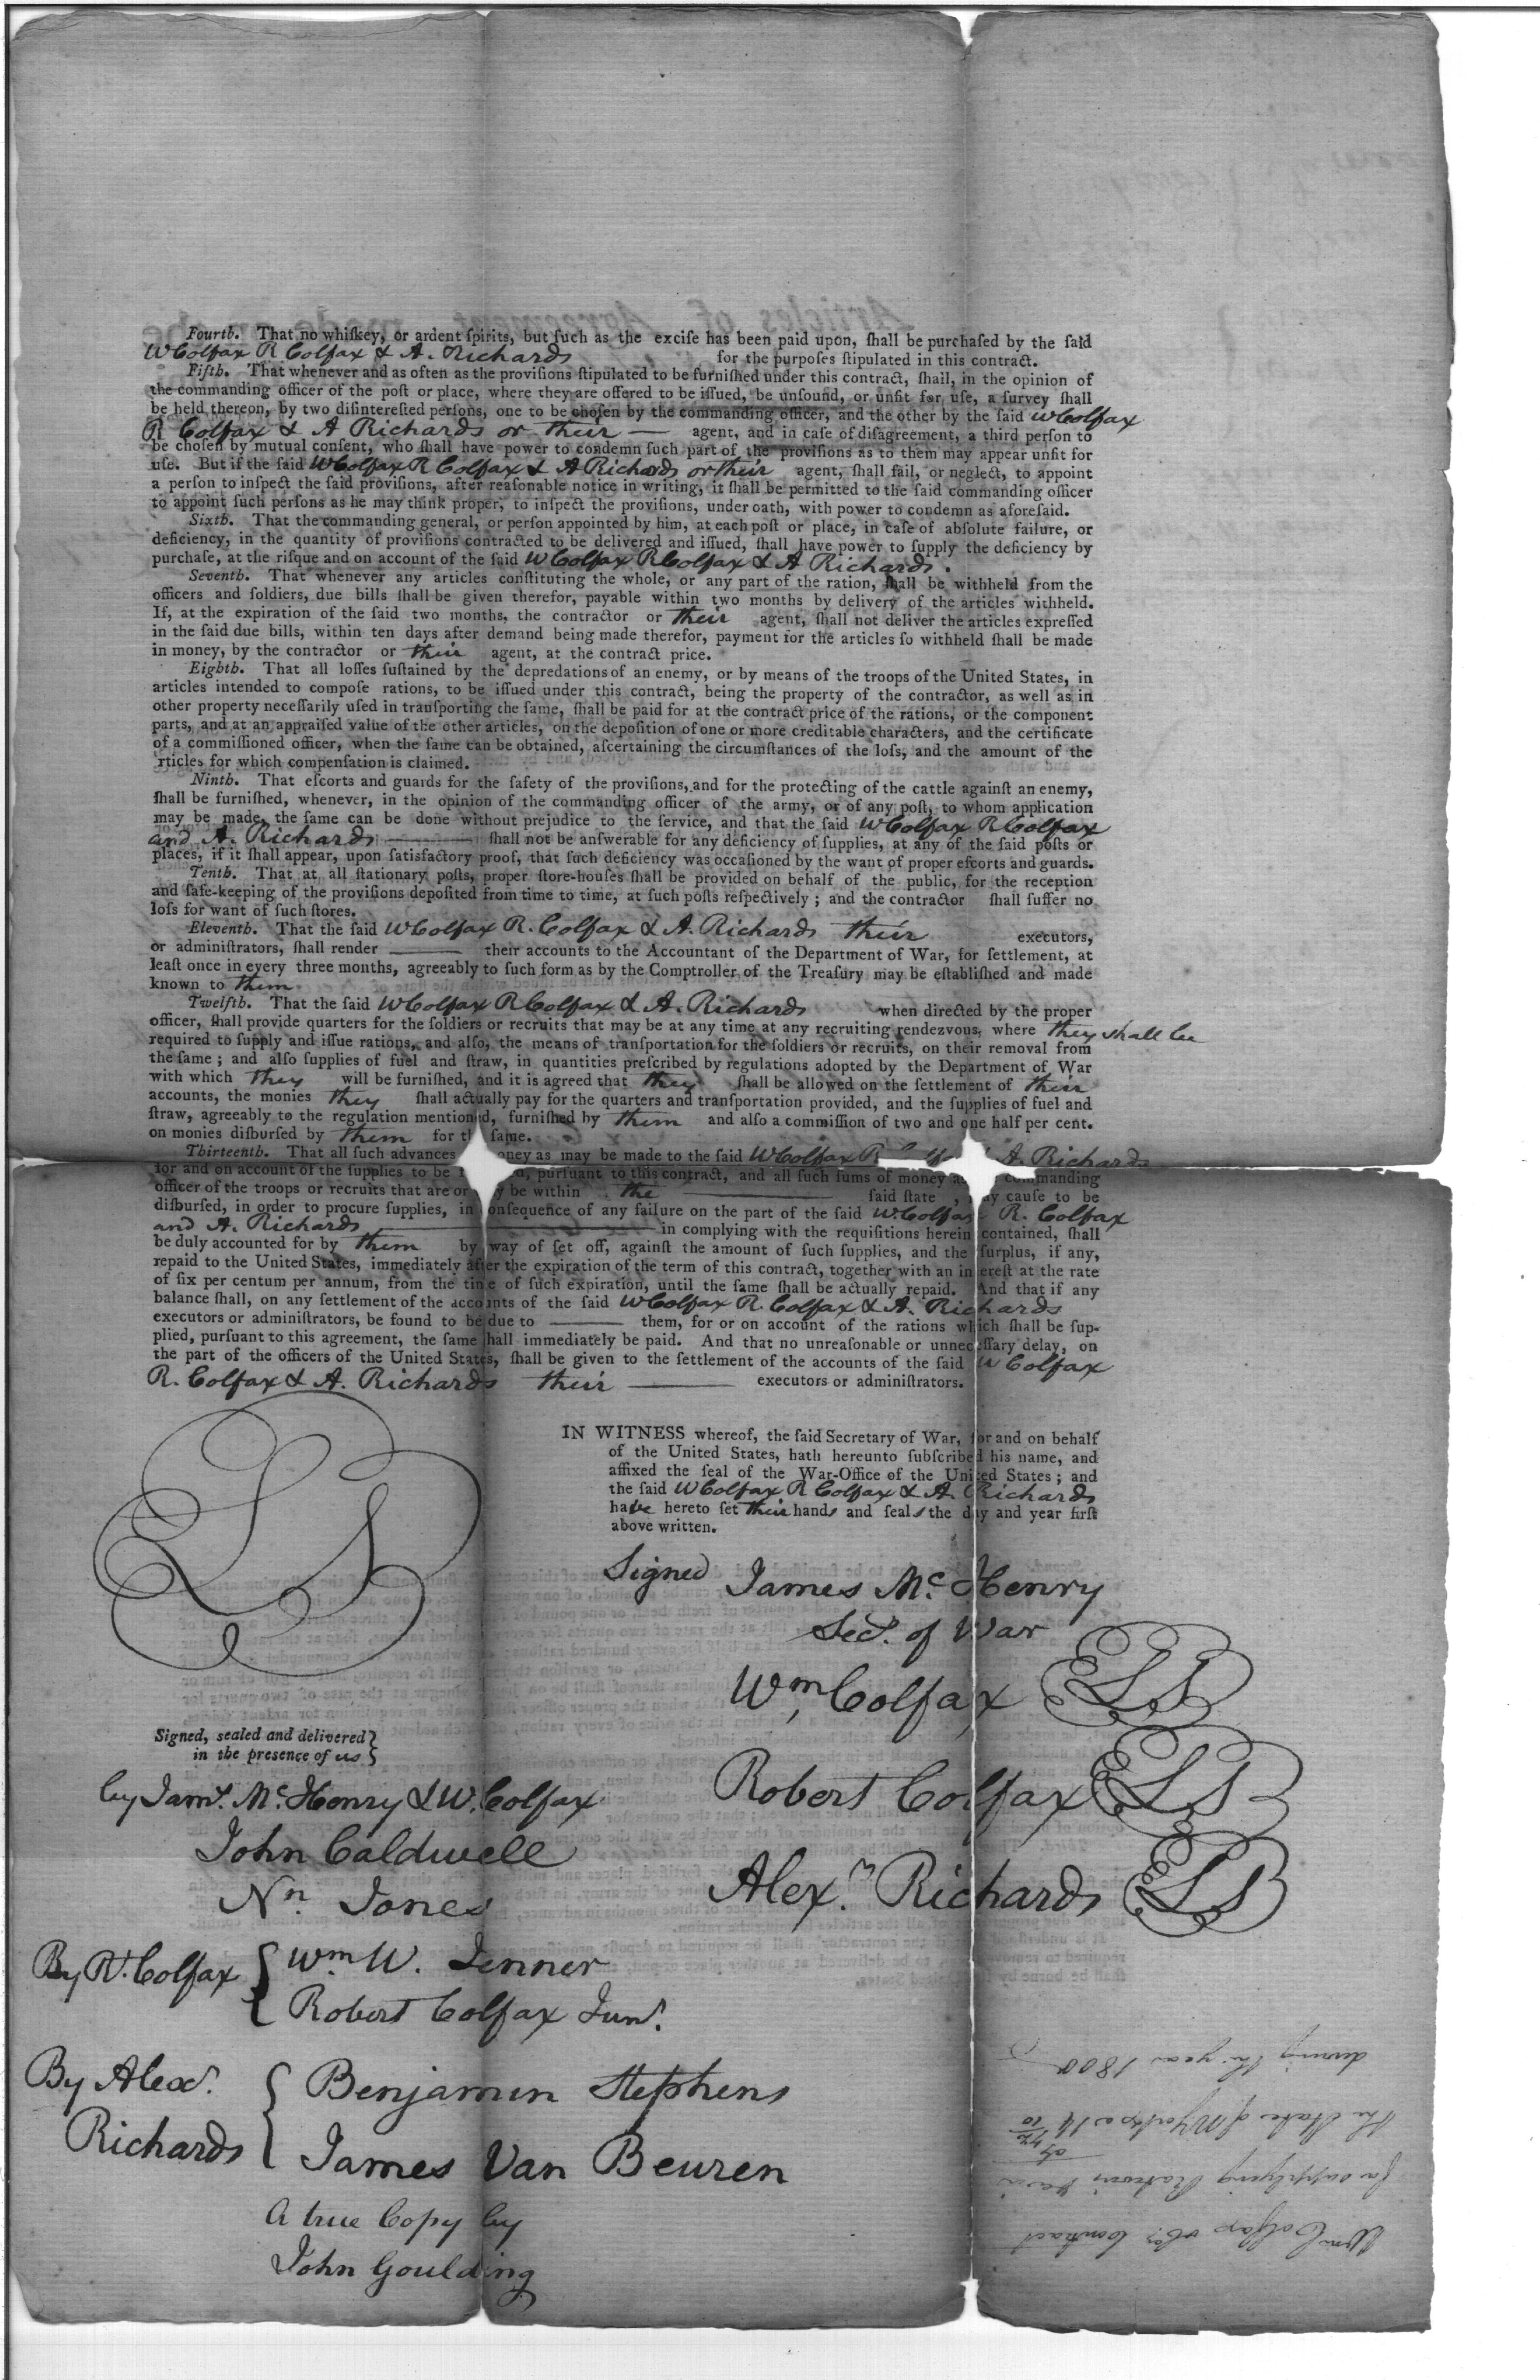 Fourth. That no whiſkey, or ardent ſpirits, but ſuch as the exciſe has been paid upon, ſhall be purchaſed by the ſaid
W Colfax R Colfax & A. Richards for the purpoſes ſtipulated in this contract.
Fifth. That whenever and as often as the proviſions ſtipulated to be furniſhed under this contract, ſhall, in the opinion of
the commanding officer of the poſt or place, where they are offered to be iſſued, be unſound, or unfit for uſe, a ſurvey ſhall
be held thereon, by two diſintereſted perſons, one to be choſen by the commanding officer, and the other by the ſaid W Colfax
R Colfax & A Richards or their — agent, and in caſe of diſagreement, a third perſon to
be choſen by mutual conſent, who ſhall have power to condemn ſuch part of the proviſions as to them may appear unfit for
uſe. But if the ſaid W Colfax R Colfax & A Richards or their agent, ſhall fail, or neglect, to appoint
a perſon to inſpect the ſaid proviſions, after reaſonable notice in writing, it ſhall be permitted to the ſaid commanding officer
to appoint ſuch perſons as he may think proper, to inſpect the proviſions, under oath, with power to condemn as aforeſaid.
Sixth. That the commanding general, or perſon appointed by him, at each poſt or place, in caſe of abſolute failure, or
deficiency, in the quantity of proviſions contracted to be delivered and iſſued, ſhall have power to ſupply the deficiency by
purchaſe, at the riſque and on account of the ſaid W Colfax R Colfax & A Richards.
Seventh. That whenever any articles conſtituting the whole, or any part of the ration, ſhall be withheld from the
officers and ſoldiers, due bills ſhall be given therefor, payable within two months by delivery of the articles withheld.
If, at the expiration of the ſaid two months, the contractor or their agent, ſhall not deliver the articles expreſſed
in the ſaid due bills, within ten days after demand being made therefor, payment for the articles ſo withheld ſhall be made
in money, by the contractor or their agent, at the contract price.
Eighth. That all loſſes ſuſtained by the depredations of an enemy, or by means of the troops of the United States, in
articles intended to compoſe rations, to be iſſued under this contract, being the property of the contractor, as well as in
other property neceſſarily uſed in tranſporting the ſame, ſhall be paid for at the contract price of the rations, or the component
parts, and at an appraiſed value of the other articles, on the depoſition of one or more creditable characters, and the certificate
of a commiſſioned officer, when the ſame can be obtained, aſcertaining the circumſtances of the loſs, and the amount of the
rticles for which compenſation is claimed.
Ninth. That eſcorts and guards for the ſafety of the proviſions, and for the protecting of the cattle againſt an enemy,
ſhall be furniſhed, whenever, in the opinion of the commanding officer of the army, or of any poſt, to whom application
may be made, the ſame can be done without prejudice to the ſervice, and that the ſaid W Colfax R Colfax
and A. Richards — ſhall not be anſwerable for any deficiency of ſupplies, at any of the ſaid poſts or
places, if it ſhall appear, upon ſatisfactory proof, that ſuch deficiency was occaſioned by the want of proper eſcorts and guards.
Tenth. That at all ſtationary poſts, proper ſtore-houſes ſhall be provided on behalf of the public, for the reception
and ſafe-keeping of the proviſions depoſited from time to time, at ſuch poſts reſpectively ; and the contractor ſhall ſuffer no
loſs for want of ſuch ſtores.
Eleventh. That the ſaid W Colfax R. Colfax & A. Richards their executors,
or adminiſtrators, ſhall render — their accounts to the Accountant of the Department of War, for ſettlement, at
leaſt once in every three months, agreeably to ſuch form as by the Comptroller of the Treaſury may be eſtabliſhed and made
known to them
Twelfth. That the ſaid W Colfax R Colfax & A. Richards when directed by the proper
officer, ſhall provide quarters for the ſoldiers or recruits that may be at any time at any recruiting rendezvous, where they shall be
required to ſupply and iſſue rations, and alſo, the means of tranſportation for the ſoldiers or recruits, on their removal from
the ſame ; and alſo ſupplies of fuel and ſtraw, in quantities preſcribed by regulations adopted by the Department of War
with which they will be furniſhed, and it is agreed that they ſhall be allowed on the ſettlement of their
accounts, the monies they ſhall actually pay for the quarters and tranſportation provided, and the ſupplies of fuel and
ſtraw, agreeably to the regulation mentioned, furniſhed by them and alſo a commiſſion of two and one half per cent.
on monies diſburſed by them for the ſame.
Thirteenth. That all ſuch advances money as may be made to the ſaid W Colfax R A Richards
for and on account of the ſupplies to be purſuant to this contract, and all ſuch ſums of money as commanding
officer of the troops or recruits that are or may be within the — ſaid ſtate , may cauſe to be
diſburſed, in order to procure ſupplies, in conſequence of any failure on the part of the ſaid W Colfax R. Colfax
and A. Richards — in complying with the requiſitions herein contained, ſhall
be duly accounted for by them by way of ſet off, againſt the amount of ſuch ſupplies, and the ſurplus, if any,
repaid to the United States, immediately after the expiration of the term of this contract, together with an intereſt at the rate
of ſix per centum per annum, from the time of ſuch expiration, until the ſame ſhall be actually repaid. And that if any
balance ſhall, on any ſettlement of the accounts of the ſaid W Colfax R. Colfax & A. Richards
executors or adminiſtrators, be found to be due to — them, for or on account of the rations which ſhall be ſup-
plied, purſuant to this agreement, the ſame ſhall immediately be paid. And that no unreaſonable or unneceſſary delay, on
the part of the officers of the United States, ſhall be given to the ſettlement of the accounts of the ſaid W Colfax
R. Colfax & A. Richards their — executors or adminiſtrators.
IN WITNESS whereof, the ſaid Secretary of War, for and on behalf
of the United States, hath hereunto ſubſcribed his name, and
affixed the ſeal of the War-Office of the United States ; and
the ſaid W Colfax R Colfax & A. Richards
have hereto ſet their hands and ſeals the day and year firſt
above written.
LS
Signed James McHenry
Secy. of War
Wm Colfax LS
Robert Colfax LS
Alexr. Richards LS
Signed, sealed and delivered
in the presence of us
by Jams. McHenry & W. Colfax
John Caldwell
Nn. Jones
By Rt. Colfax { Wm W. Jenner
Robert Colfax Junr.
By Alexr. Richards { Benjamin Stephens
James Van Beuren
A true Copy by
John Goulding
Wm Colfax & Co's Contract
for supplying Rations &c in
the State of NYork
during the year 1800